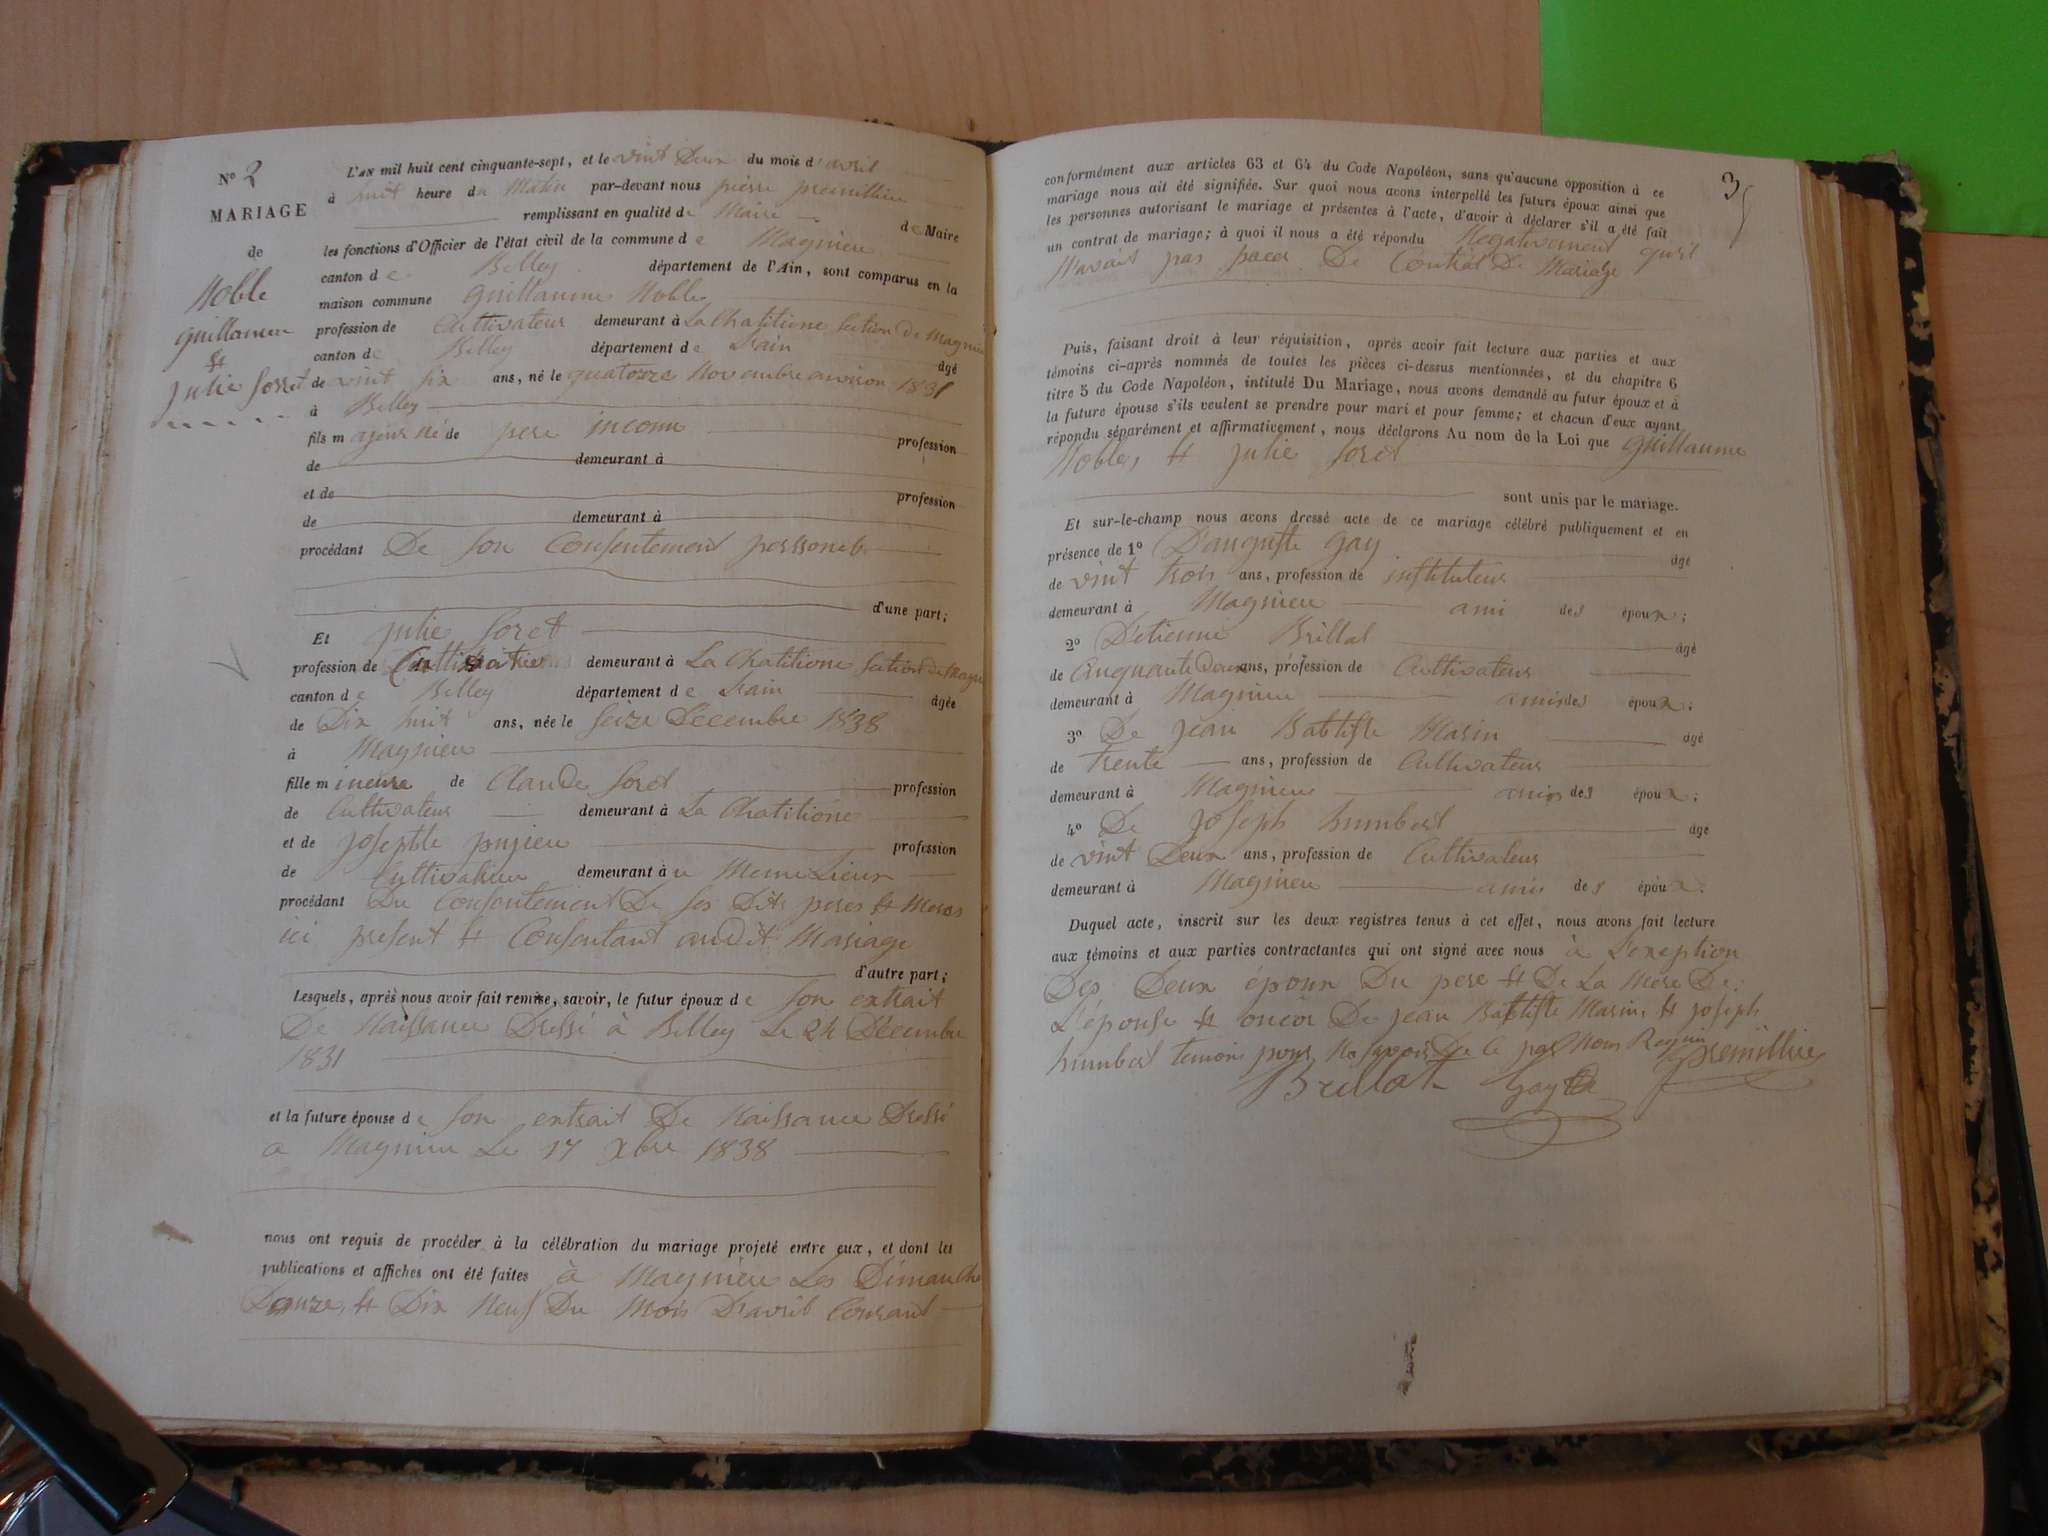 N° 2
MARIAGE
de
Noble
guillaume
et
Julie Sorret
L'AN mil huit cent cinquante-sept, et le vint Deux du mois d'avril
à huit heure du Matin par-devant nous pierre premillieu
remplissant en qualité de Maire de Maire
les fonctions d'Officier de l'état civil de la commune de Magnieu
canton de Belley département de l'Ain, sont comparus en la
maison commune guillaume Noble
profession de Cultivateur demeurant à La Chatilione Section De Magnieu
canton de Belley département de Lain âgé
de vint six ans, né le quatorze Novembre anviron 1831
à Belley
fils majeur né de pere inconu profession
de demeurant à
et de profession
de demeurant à
procédant De son Consentement perssonel
d'une part;
Et julie Soret
profession de demeurant à La Chatilione Section De Magnieu
canton de Belley département de Lain âgée
de Dix huit ans, née le seize Decembre 1838
à Magnieu
fille mineure de Claude Soret profession
de Cultivateur demeurant à La Chatilione
et de josephte pujieu profession
de Cultivatieur demeurant à u Meme Lieux
procédant Du Consentement De ses Dits peres et Meres
ici present et Consentant audit Mariage
d'autre part;
Lesquels, après nous avoir fait remise, savoir, le futur époux de son extrait
De Naissance Dressé à Belley Le 24 Décembre
1831
et la future épouse de son extrait De Naissance Dressé
a Magnieu Le 17 Xbre 1838
nous ont requis de procéder à la célébration du mariage projeté entre eux, et dont les
publications et affiches ont été faites à Magnieu Les Dimanche
Douze, et Dix Neuf Du Mois D'avril Courant
3
conformément aux articles 63 et 64 du Code Napoléon, sans qu'aucune opposition à ce
mariage nous ait été signifiée. Sur quoi nous avons interpellé les futurs époux ainsi que
les personnes autorisant le mariage et présentes à l'acte, d'avoir à déclarer s'il a été fait
un contrat de mariage; à quoi il nous a été répondu Negativement qu'il
N'avait pas paces De Contrat De Mariage
Puis, faisant droit à leur réquisition, après avoir fait lecture aux parties et aux
témoins ci-après nommés de toutes les pièces ci-dessus mentionnées, et du chapitre 6
titre 5 du Code Napoléon, intitulé Du Mariage, nous avons demandé au futur époux et à
la future épouse s'ils veulent se prendre pour mari et pour femme; et chacun d'eux ayant
répondu séparément et affirmativement, nous déclarons Au nom de la Loi que guillaume
Noble, et julie Soret
sont unis par le mariage.
Et sur-le-champ nous avons dressé acte de ce mariage célébré publiquement et en
présence de 1° D'auguste Gay âgé
de vint trois ans, profession de instituteur
demeurant à Magnieu ami des époux;
2° D'etienne Brillat âgé
de Cinquante Deux ans, profession de Cultivateur
demeurant à Magnieu amis des époux;
3° De jean Batiste Masin âgé
de trente ans, profession de Cultivateur
demeurant à Magnieu amis des époux;
4° De joseph humbert âgé
de vint Deux ans, profession de Cultivateur
demeurant à Magnieu amis des époux.
Duquel acte, inscrit sur les deux registres tenus à cet effet, nous avons fait lecture
aux témoins et aux parties contractantes qui ont signé avec nous à L'exeption
Des Deux époux Du pere et De La Mere De
L'épouse et oncor De jean Batiste Masin, et joseph
humbert temoins pour Ne savoir De Ce par Nous Requis
Brillat Gay premillieu